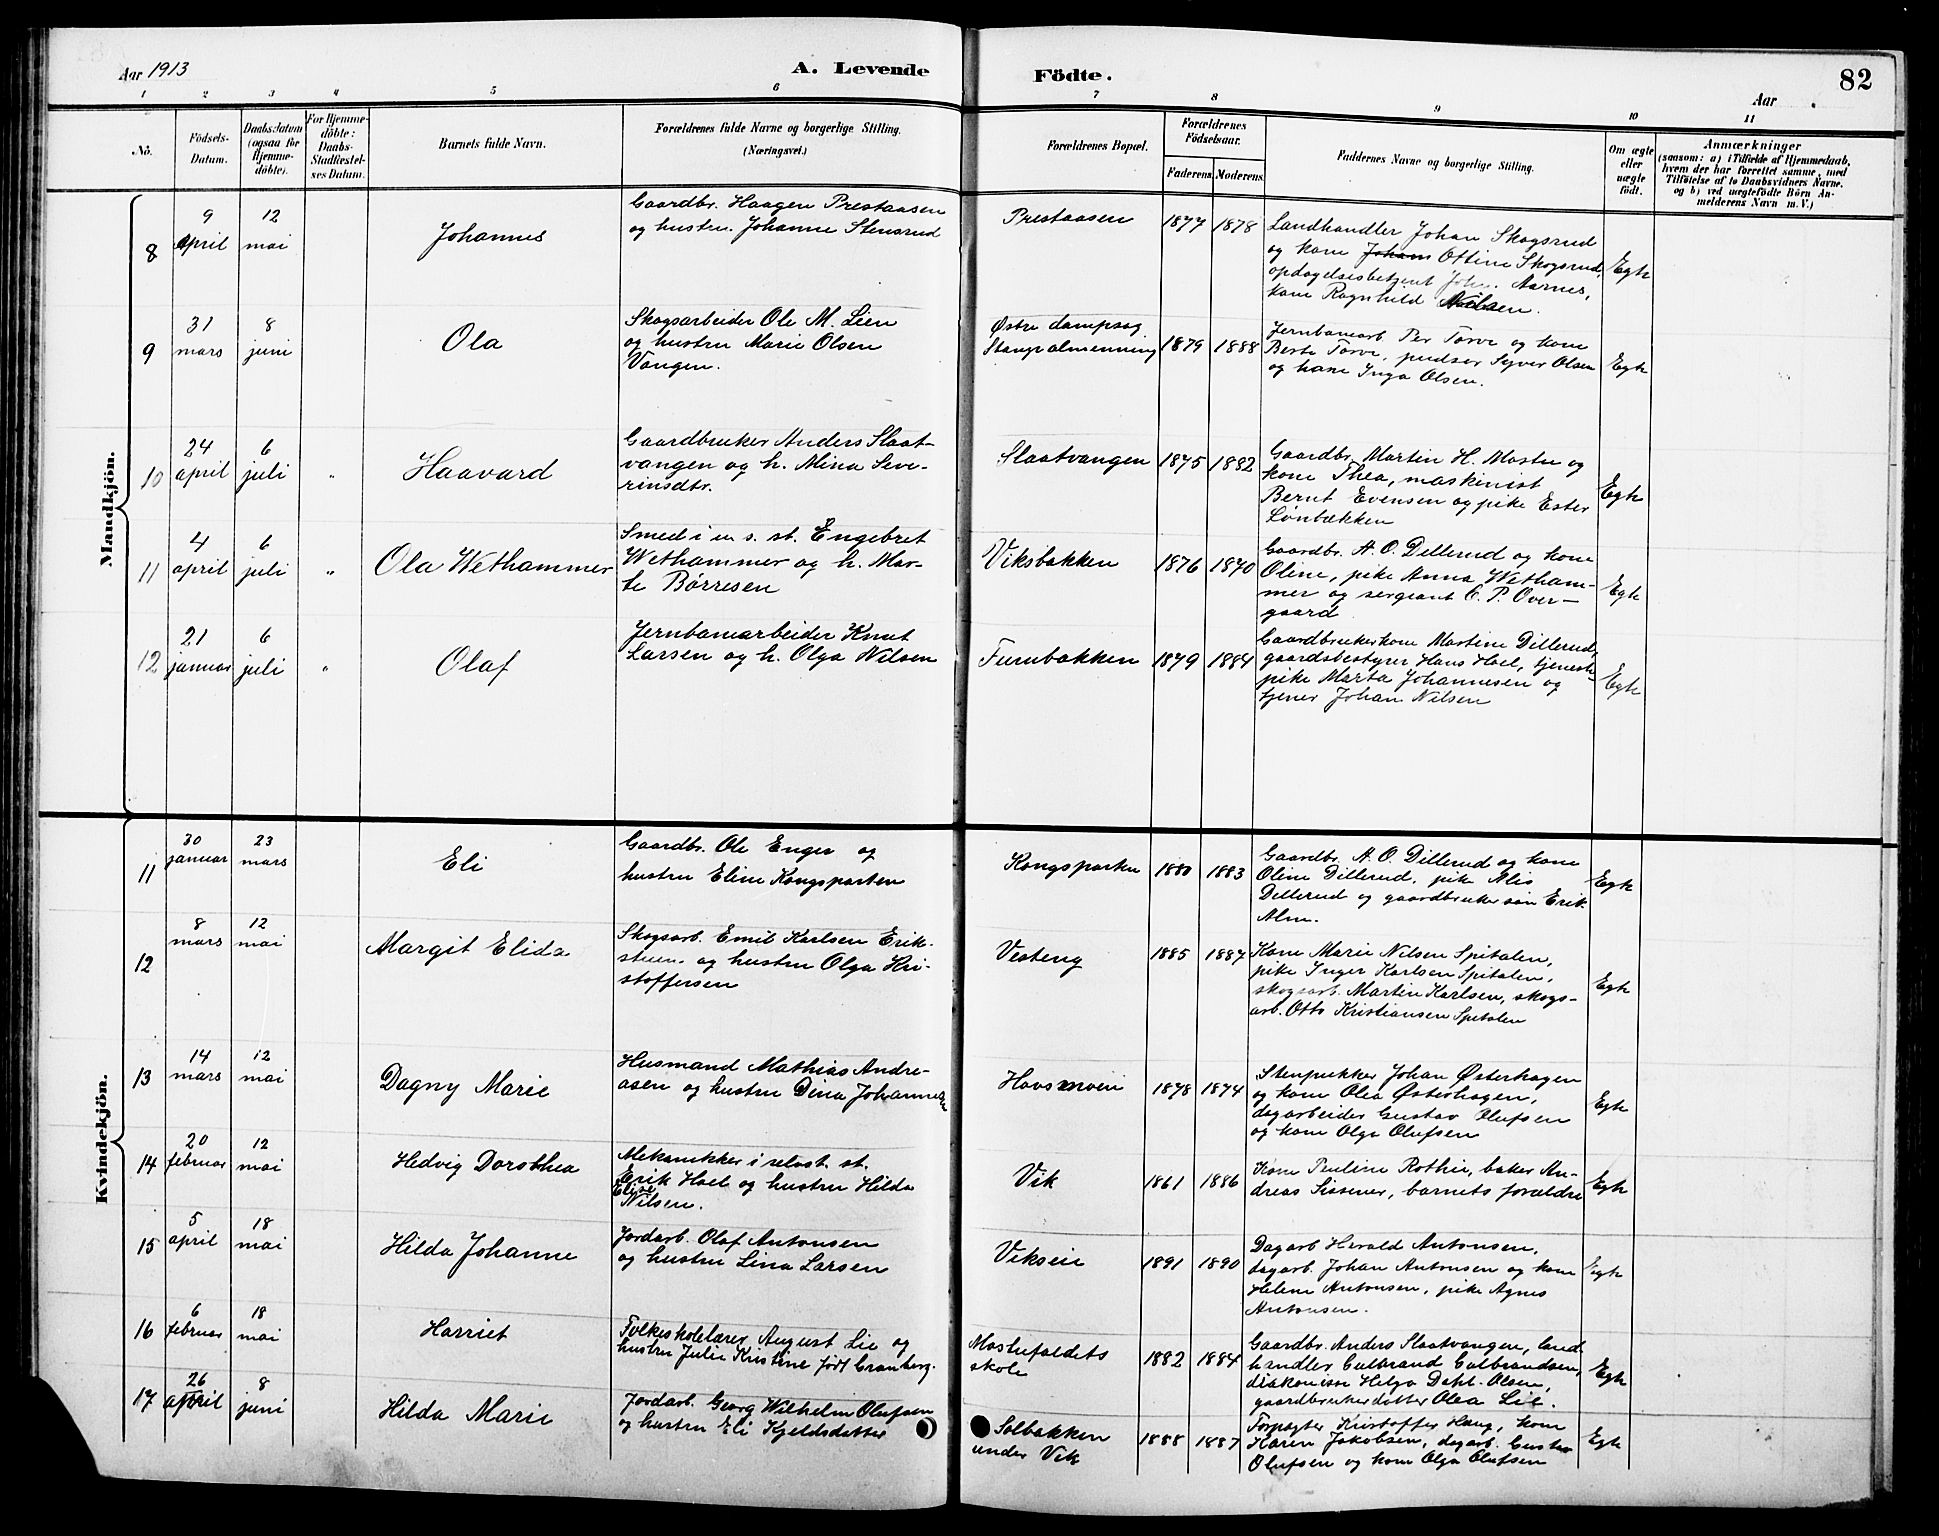 Aar 1913
A. Levende
Födte.
Aar
82
1 2 3 4 5 6 7 8 9 10 11
No.
Födsels-
Datum.
Daabsdatum
(ogsaa for
Hjemme-
döbte).
For Hjemme-
döbte:
Daabs-
Stadfæstel-
ses Datum.
Barnets fulde Navn.
Forældrenes fulde Navne og borgerlige Stilling.
(Næringsvei.)
Forældrenes Bopæl.
Forældrenes
Födselsaar.
Faderens Moderens.
Faddernes Navne og borgerlige Stilling.
Om ægte
eller
uægte
födt.
Anmærkninger
(saasom: a) i Tilfælde af Hjemmedaab,
hvem der har forrettet samme, med
Tilföielse af to Daabsvidners Navne.
og b) ved uægtefödte Börn An-
melderens Navn m.V.)
Mandkjön.
8
9
april
12
mai
Johannes
Gaardbr. Haagen Prestaasen
og hustru Johanne Stensrud
Prestaasen
1877 1878
Landhandler Johan Skogsrud
og kone Johans Ottine Skogsrud,
opdagelsesbetjent Joh. Aarnes,
kone Ragnhild Nilsen.
Egte
9
31
mars
8
juni
Ola
Skogsarbeider Ole M. Lien
og hustru Marie Olsen
Vangen.
Østre dampsag
Stange almenning
1879 1888
Jernbanearb Per Torve og kone
Berte Torve, pudser Syver Olsen
og kone Inga Olsen.
Egte
10
24
april
6
juli
"
Haavard
Gaardbruker Anders Slaat-
vangen og h. Mina Seve-
rinsdtr.
Slaatvangen
1875 1882
Gaardbr. Martin H. Mostue og
kone Thea, maskinist
Bernt Evensen og pike Ester
Lønbækken
Egte
11
4
april
6
juli
"
Ola Wethammer
Smed i en s. st. Engebret
Wethammer og h. Mar-
te Børresen
Viksbakken
1876 1870
Gaardbr. A. O. Dillerud og kone
Oline, pike Anna Wetham-
mer og sergeant C. P. Over-
gaard
Egte
12
21
januar
6
juli
"
Olaf
Jernbanearbeider Knut
Larsen og h. Olga Nilsen
Furubakken
1879 1884
Gaardbrukerkone Martine Dillerud,
gaardsbestyrer Hans Hoel, tjeneste-
pike Marta Johannesen og
tjener Johan Nilsen
Egte
Kvindekjön.
11
30
januar
23
mars
Eli
Gaardbr. Ole Enger og
hustru Eline Kongsparten
Kongsparten
1880 1883
Gaardbr. A. O. Dillerud og kone
Oline Dillerud, pike Alis
Dillerud og gaardbrukersøn Erik
Alm.
Egte
12
8
mars
12
mai
Margit Elida
Skogsarb. Emil Karlsen Erik-
stuen og hustru Olga Kri-
stoffersen
Vesteng
1885 1887
Kone Marie Nilsen Spitalen,
pike Inger Karlsen Spitalen,
skogsarb. Martin Karlsen, skogs-
arb. Otto Kristiansen Spitalen
Egte
13
14
mars
12
mai
Dagny Marie
Husmand Mathias Andre-
asen og hustru Dina Johannesen
Hovsmoen
1878 1874
Stenpukker Johan Østerhagen
og kone Olea Østerhagen,
dagarbeider Gustav Olufsen
og kone Olga Olufsen
Egte
14
20
februar
12
mai
Hedvig Dorothea
Mekanikker i selvst. st.
Erik Hoel og hustru Hilda
Elise
Nilsen.
Vik
1861 1886
Kone Pauline Rothie, baker An-
dreas Sissener, barnets forældre
Egte
15
5
april
18
mai
Hilda Johanne
Jordarb. Olaf Antonsen
og hustru Lina Larsen
Vikseie
1891 1890
Dagarb Herald Antonsen,
dagarb. Johan Antonsen og kone
Helene Antonsen, pike Agnes
Antonsen.
Egte
16
6
februar
18
mai
Harriet
Folkeskolelærer August Lie og
hustru Julie Kristine født Granberg.
Mostuefaldets
skole
1882 1884
Gaardbr. Anders Slaatvangen, land
handler Gulbrand Gulbrandsen,
diakonisse Helga Dahl-Olsen,
gaardbrukerdatter Olea Lie.
Egte
17
26
april
8
juni
Hilda Marie
Jordarb. Georg Wilhelm Olufsen
og hustru Eli Kjeldsdatter
Solbakken
under Vik
1888 1887
Forpagter Kristoffer Haug, kone
Karen Jakobsen, dagarb. Gustav
Olufsen og kone Olga Olufsen
Egte